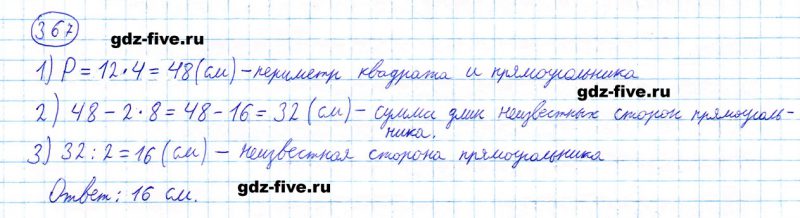 367
gdz-five.ru
1) P = 12 • 4 = 48 (см) – периметр квадрата и прямоугольника
gdz-five.ru
2) 48 – 2 • 8 = 48 – 16 = 32 (см) – сумма длин неизвестных сторон прямоуголь-
ника.
3) 32 : 2 = 16 (см) – неизвестная сторона прямоугольника
Ответ: 16 см.
gdz-five.ru